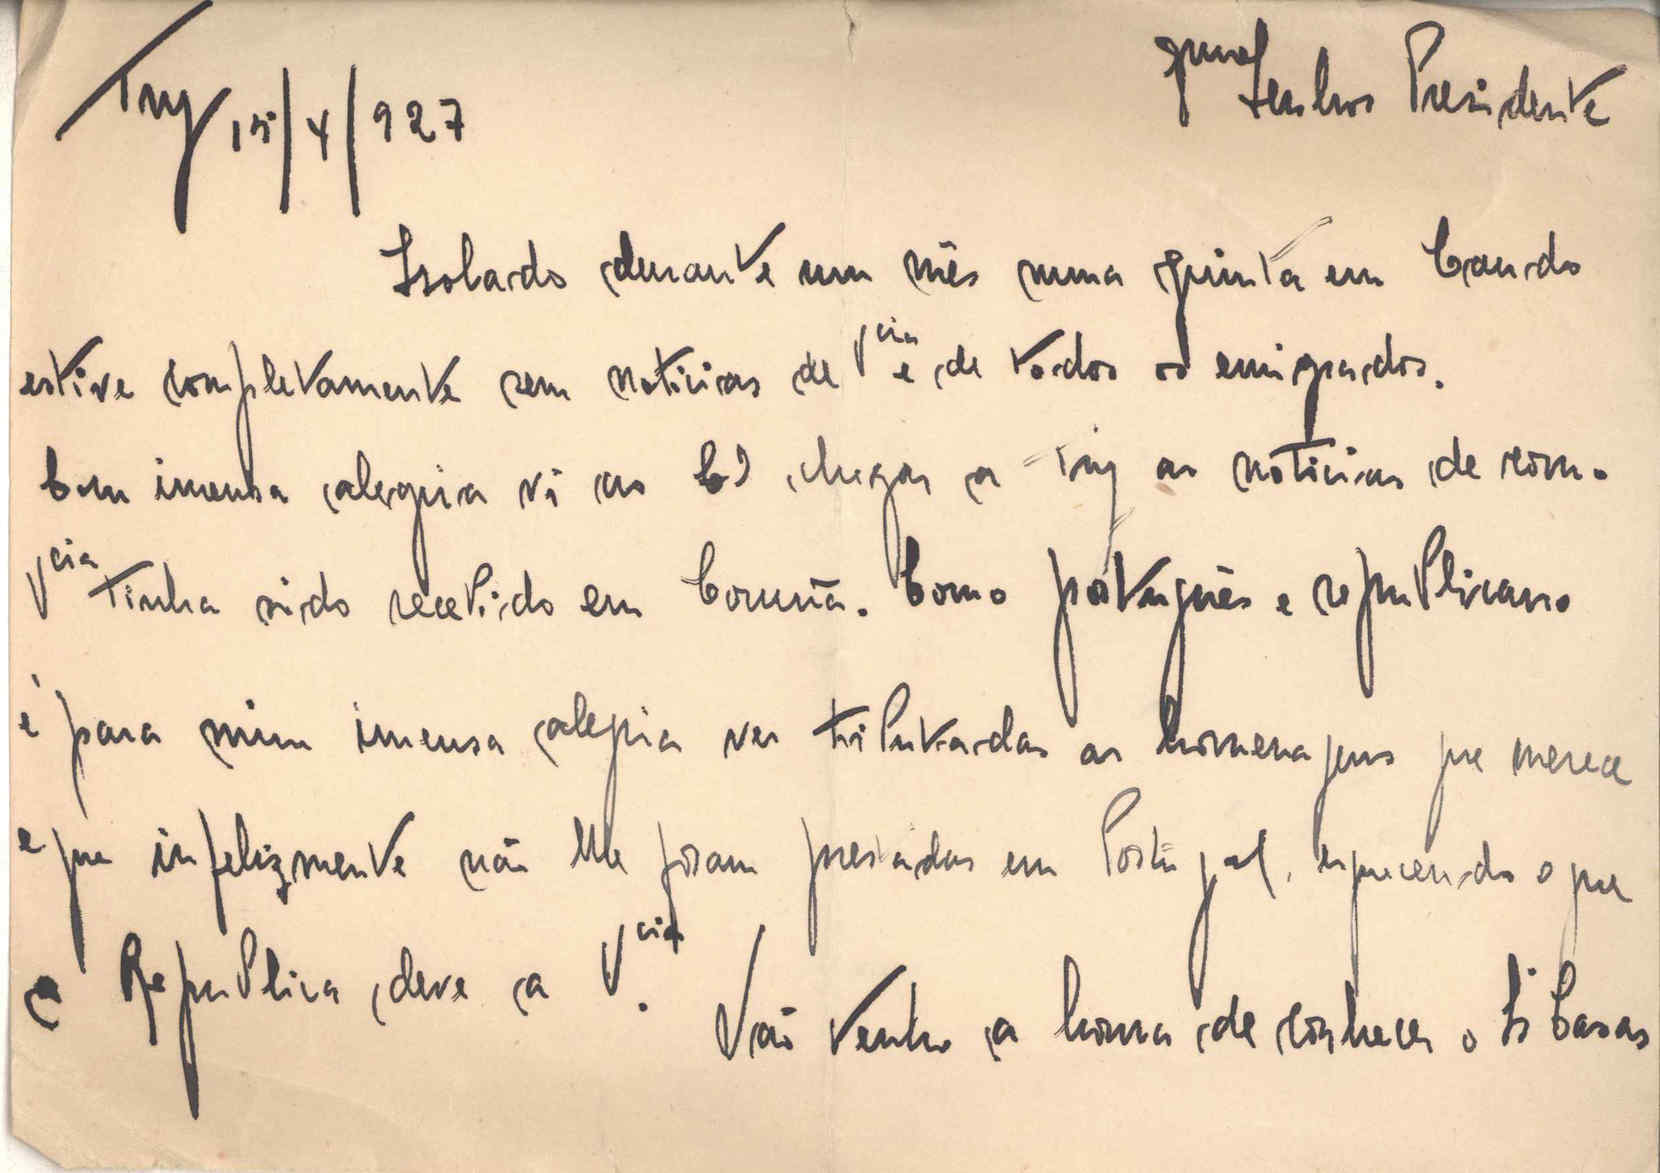 Tuy 15/4/927
Senhor Presidente
Isolado durante um mês numa quinta em Caudo
estive completamente sem noticias de Vcia e de todos os emigrados.
Com imensa alegria vi ao chegar a Tuy as noticias de com.
Vcia tinha sido recebido em Coruña. Como português e republicano
é para mim imensa alegria ver tributadas as homenagens que merece
e que infelizmente não lhe foram prestadas em Portugal, esquecendo o que
a Republica deve a Vcia.
Não tenho a honra de conhecer o Sr Casas